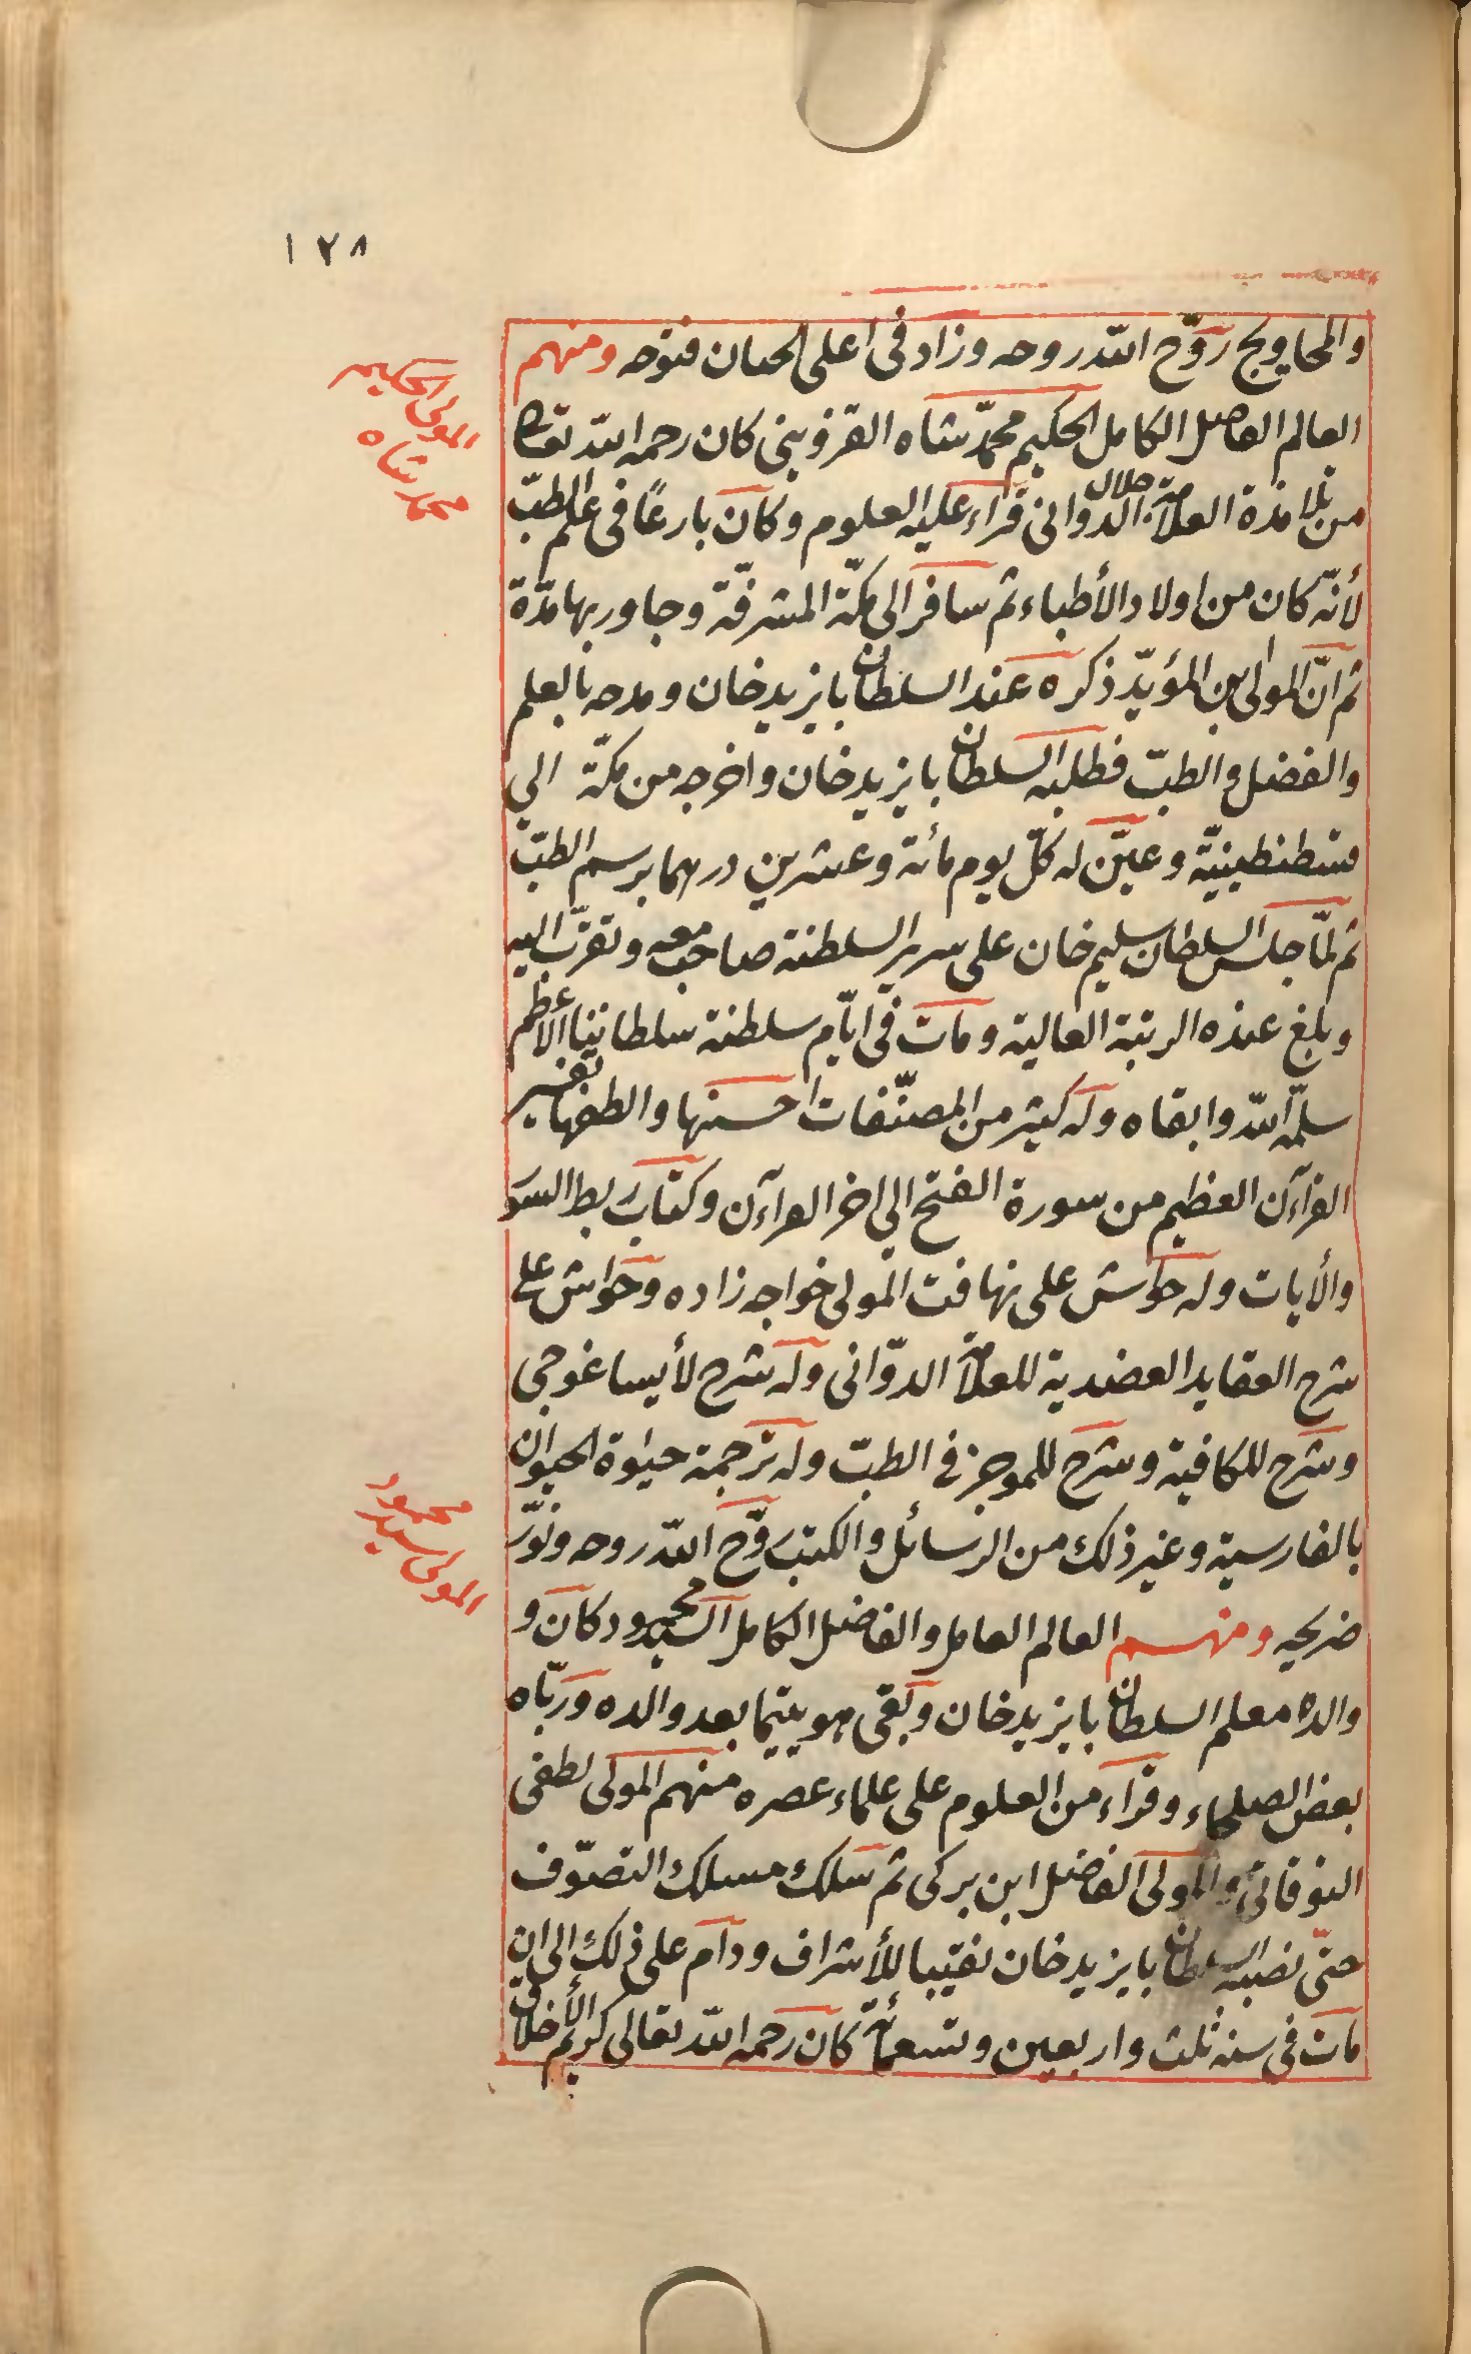 ١٢٨
والمحاويج روّح اللّه روحه وزاد في اعلى الجنان فتوحه ومنهم
المولى الحكيم
محمد شاه
العالم الفاضل الكامل الحكيم محمّد شاه القزويني كان رحمه اللّه تعالى
من تلامذة العلامة جلال الدوّاني قراء عليه العلوم وكان بارعًا في علم الطبّ
لأنّه كان من اولاد الأطباء ثم سافر الى مكّة المشرفّة وجاور بها مدّة
ثم انّ المولى ابن المؤيّد ذكره عند السلطان بايزيد خان ومدحه بالعلم
والفضل والطبّ فطلبه السلطان بايزيد خان واخرجه من مكّة الي
قسطنطينيّة وعيّن له كلّ يوم مائة وعشرين درهما برسم الطبّ
ثم لمّا جلس السلطان سليم خان على سرير السلطنة صاحب معه وتقرّب اليه
وبلغ عنده الرتبة العالية ومات في ايّام سلطنة سلطاننا الأعظم
سلّمه اللّه وابقاه وله كثير من المصنّفات احسنها والطفها تفسير
القرآن العظيم من سورة الفتح الي اخر القرآن وكتاب ربط السور
والأيات وله حواش على تهافت المولى خواجه زاده وحواش على
شرح العقايد العضدية للعلامة الدوّاني وله شرح لأيساغوجي
وشرح للكافية وشرح للموجز في الطبّ وله ترجمة حيوة الحيوان
بالفارسية وغير ذلك من الرسائل والكتب روّح اللّه روحه ونوّر
المولى سيد
محمود
ضريحه ومنهم العالم العامل والفاضل الكامل السيد محمود كان و
والده معلم السلطان بايزيد خان وبقى هو يتيما بعد والده وربّاه
بعض الصلحاء وقراء من العلوم على علماء عصره منهم المولى لطفي
التوقاتي والمولى الفاضل ابن بركى ثم سلك مسلك التصوّف
حتّى نصبه السلطان بايزيد خان نقيبا للأشراف ودام على ذلك الى ان
مات في سنه ثلث واربعين وتسعمأة كان رحمه اللّه تعالى كريم الأخلاق